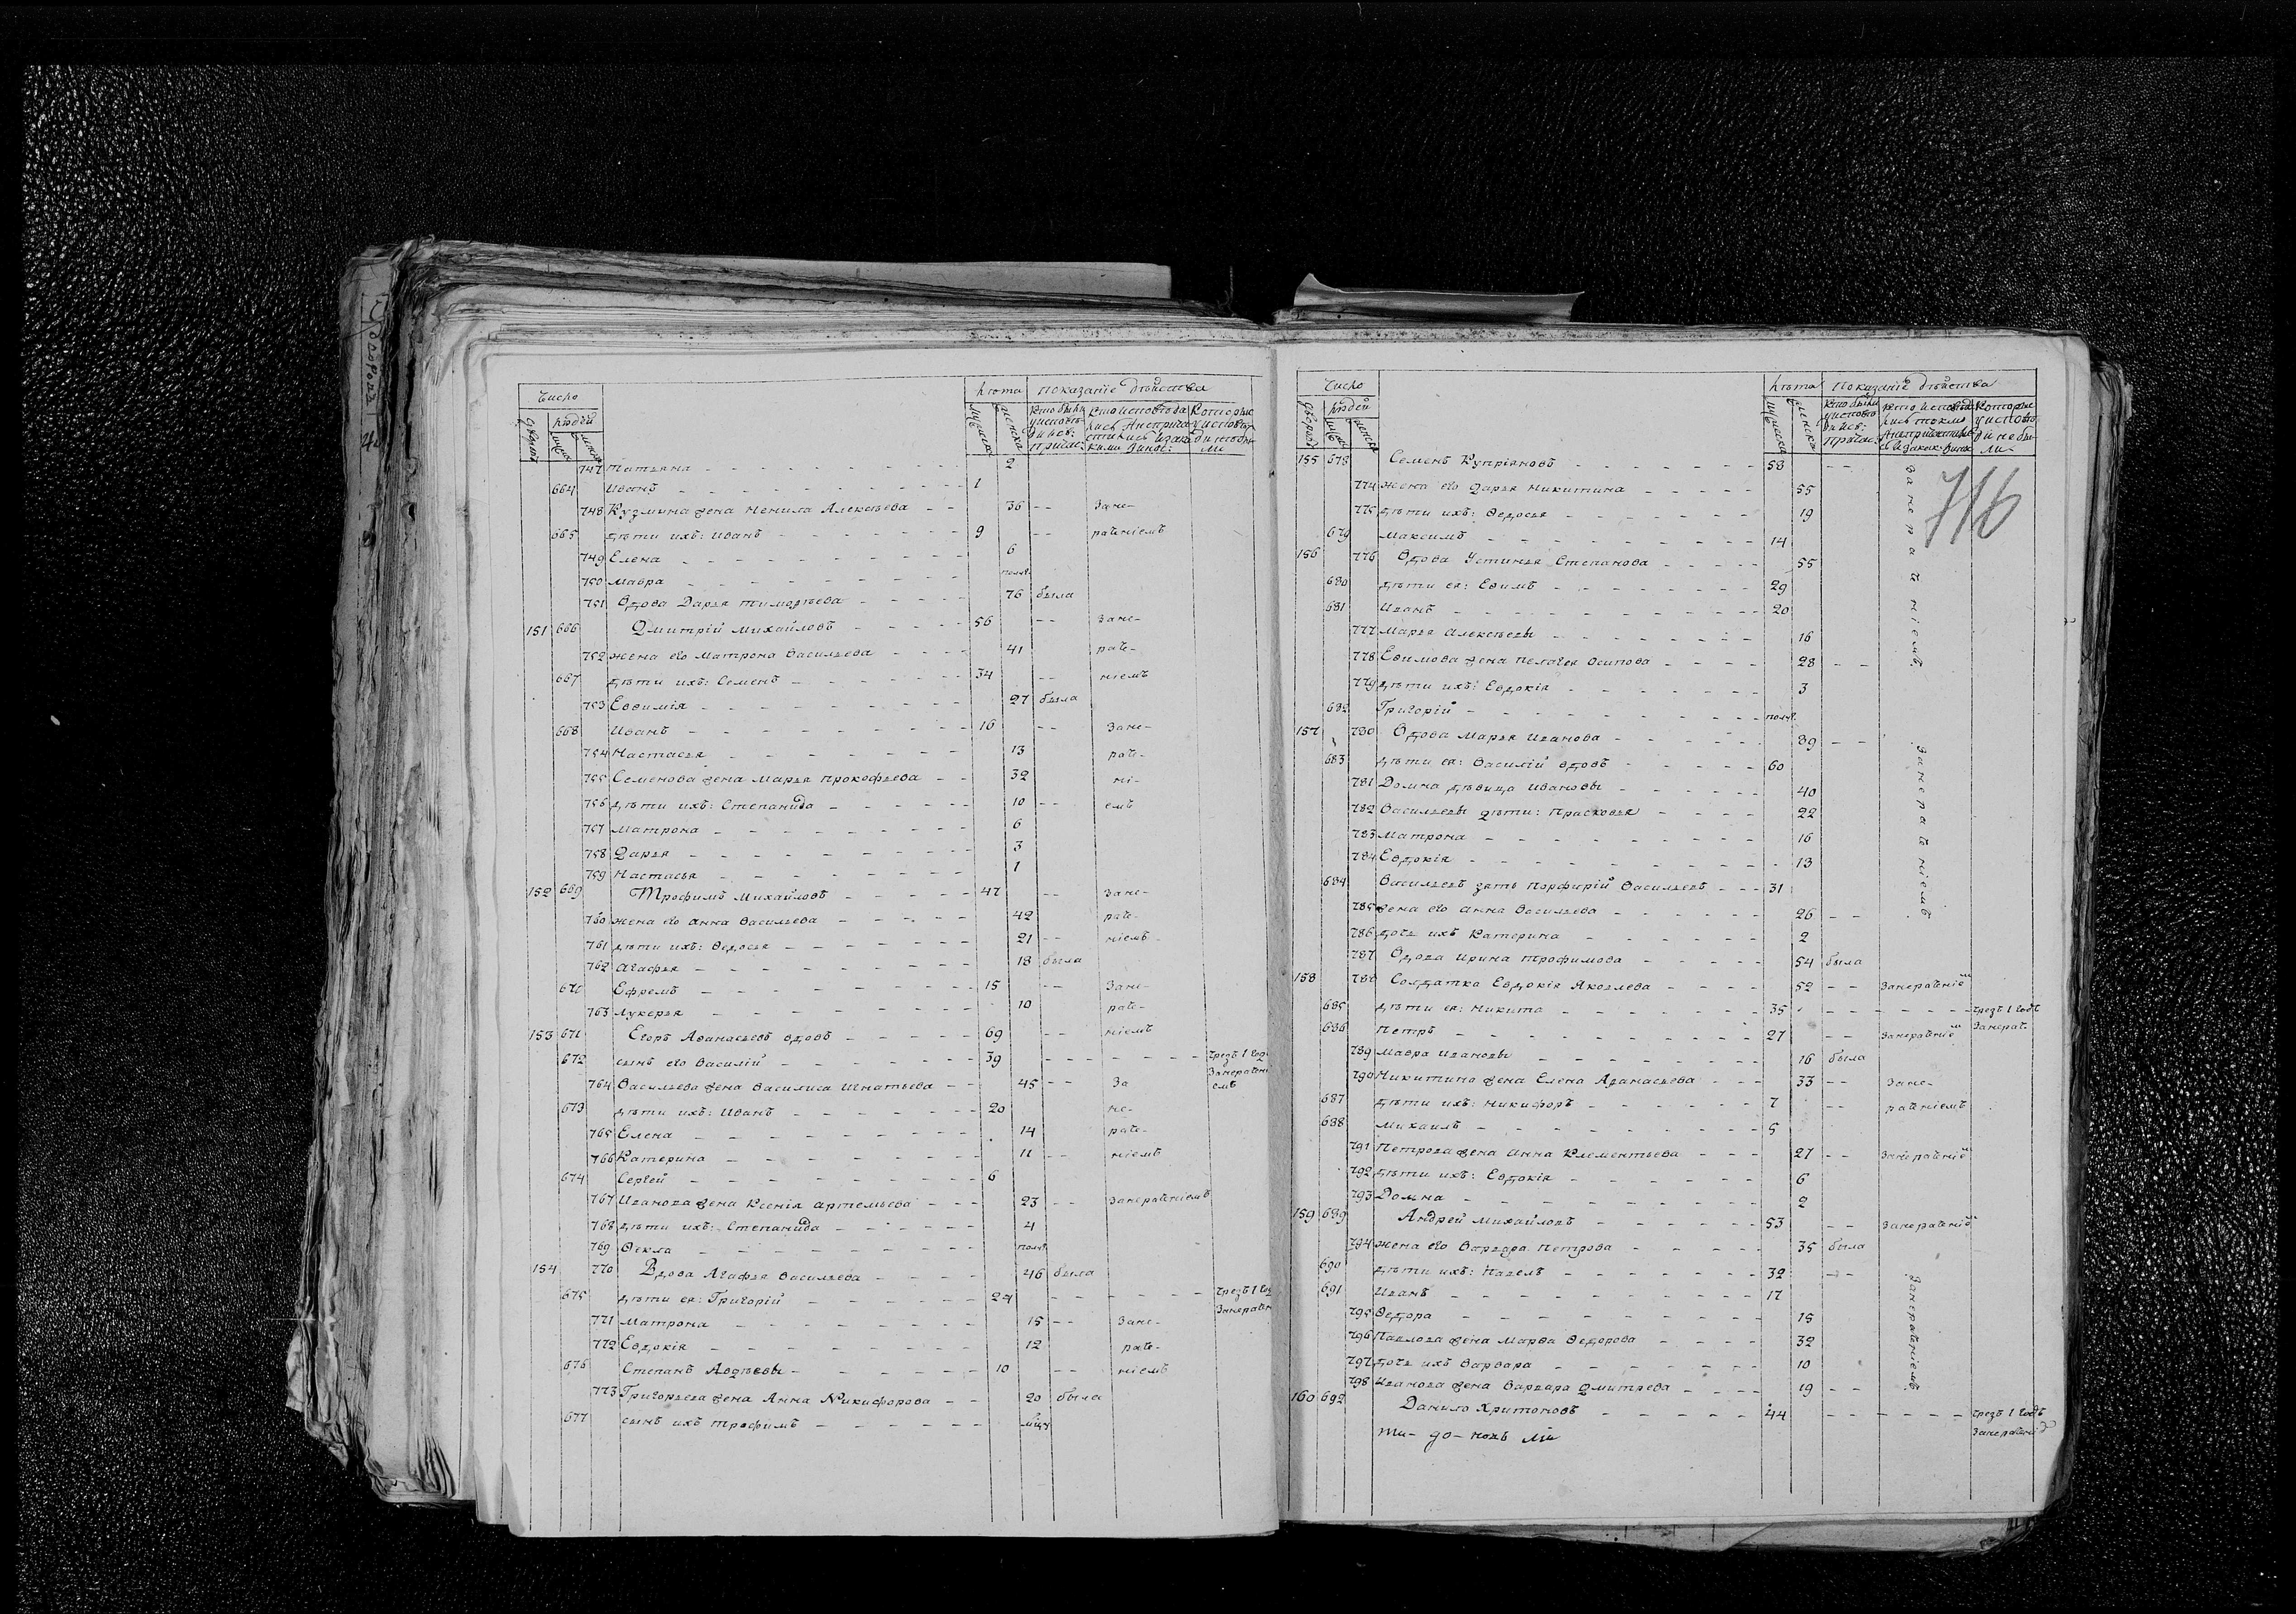 Число
Людей
Лѣта
Показаніе дѣйства
747 Татьяна 2
664 Иванъ 1
748 Кузмина жена Ненила Алексѣева 36 Зане-
665 дѣти ихъ: Иванъ 9 раченіемъ
749 Елена 6
750 Мавра полг.
751 Вдова Дарья Тимофѣева 76 была
151 666 Дмитрій Михайловъ 56 Зане-
752 жена его Матрона Васильева 41 раче-
667 дѣти ихъ: Семенъ 34 ніемъ
753 Евѳимія 27 была
668 Иванъ 16 Зане-
754 Настасья 13 раче-
755 Семенова жена Марья Прокофьева 32 ні-
756 дѣти ихъ: Степанида 10 емъ
757 Матрона 6
758 Дарья 3
759 Настасья 1
152 669 Трофимъ Михайловъ 47 Зане-
760 жена его Анна Васильева 42 раче-
761 дѣти ихъ: Ѳедосья 21 ніемъ
762 Агафья 18 была
670 Ефремъ 15 Зане-
763 Лукерья 10 раче-
153 671 Егоръ Аѳанасьевъ вдовъ 69 ніемъ
672 сынъ его Василій 39 чрезъ 1 год
Занерачені
764 Васильева жена Василиса Игнатьева 45 За емъ
673 дѣти ихъ: Иванъ 20 не-
765 Елена 14 раче-
766 Катерина 11 ніемъ
674 Сергей 6
767 Иванова жена Ксенія Артемьева 23 Занераченіемъ
768 дѣти ихъ: Степанида 4
769 Ѳекла полг.
154 770 Вдова Агафья Васильева 46 была
675 дѣти ея: Григорій 24 чрезъ 1 год
Занерачен
771 Матрона 15 Зане-
772 Евдокія 12 раче-
676 Степанъ Авдѣевы 10 ніемъ
773 Григорьева жена Анна Никифорова 20 была
677 сынъ ихъ Трофимъ
Число
Людей
Лѣта
Показаніе дѣйства
716
155 678 Семенъ Купріяновъ 58 Занераченіемъ
774 жена его Дарья Никитина 55
775 дѣти ихъ: Ѳедосья 19
679 Максимъ 14
156 776 Вдова Устинья Степанова 55
680 дѣти ея: Евимъ 29
681 Иванъ 20
777 Марья Алексѣевы 16
778 Евимова жена Пелагея Осипова 28
779 дѣти ихъ: Евдокія 3
682 Григорій полг.
157 780 Вдова Марья Иванова 89 Занераченіемъ
683 дѣти ея: Василій вдовъ 60
781 Домна дѣвица Ивановы 40
782 Васильевы дѣти: Прасковья 22
783 Матрона 16
784 Евдокія 13
684 Васильевъ зять Порфирій Васильевъ 31
785 жена его Анна Васильева 26
786 дочь ихъ Катерина 2
787 Вдова Ирина Трофимова 54 была
158 788 Солдатка Евдокія Яковлева 52 Занерачение
685 дѣти ея: Никита 35 чрезъ 1 годъ
686 Петръ 27 Занераченіе Занерач.
789 Мавра Ивановы 16 была
790 Никитина жена Елена Аѳанасьева 33 Зане-
687 дѣти ихъ: Никифоръ 7 раченіемъ
688 Михаилъ 5
791 Петрова жена Анна Клементьева 27 Занераченіе
792 дѣти ихъ: Евдокія 6
793 Домна 2
159 689 Андрей Михайловъ 53 Занераченіе
794 жена его Варвара Петрова 35 была
690 дѣти ихъ: Павелъ 32 Занераченіемъ
691 Иванъ 17
795 Ѳедора 15
796 Павлова жена Марѳа Ѳедорова 32
797 дочь ихъ Варвара 10
798 Иванова жена Варвара Дмитрева 19
160 692 Данило Харитоновъ 44 чрезъ 1 годъ
Занерачені